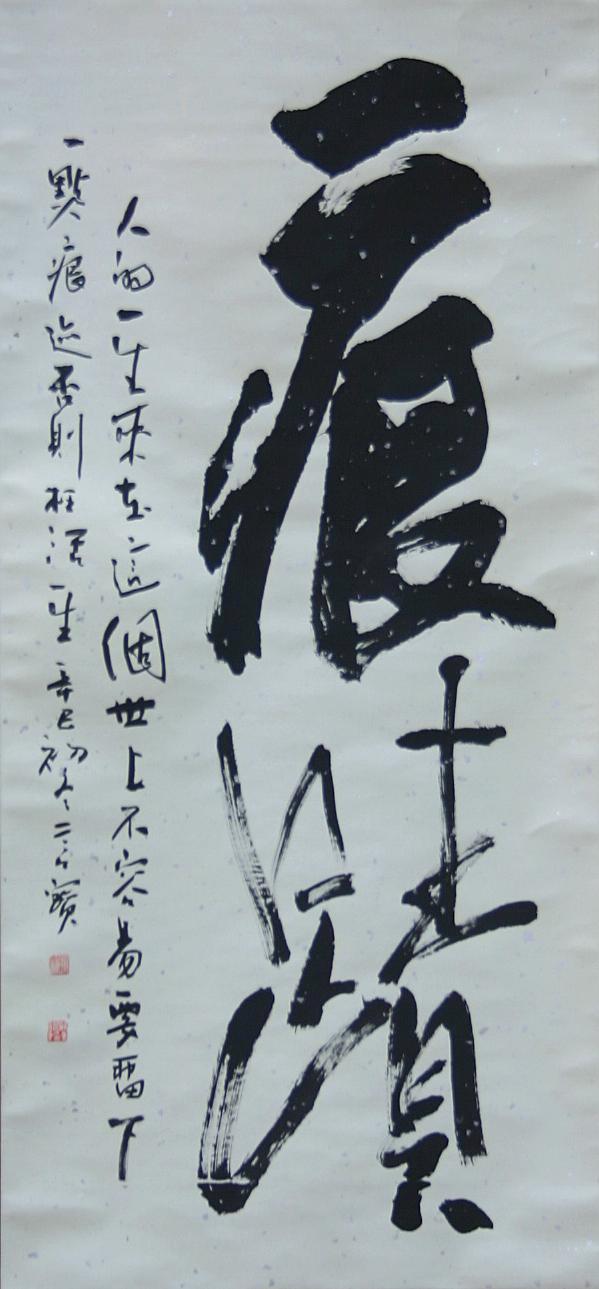 痕蹟
人的一生來在這個世上不容易要留下
一點痕迹否則枉活一生辛巳初冬二寶